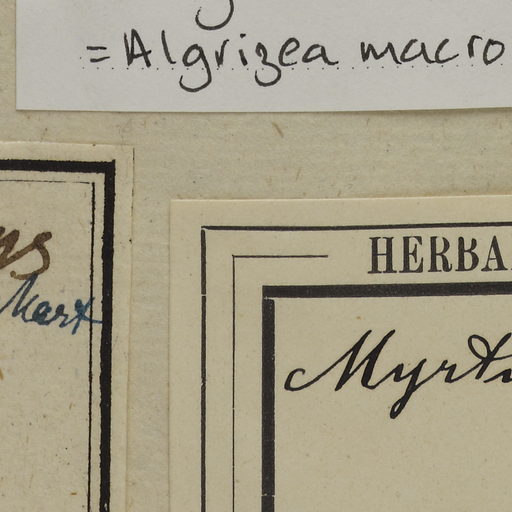 =Algrizea macro
Mart
HERBA
Myrt